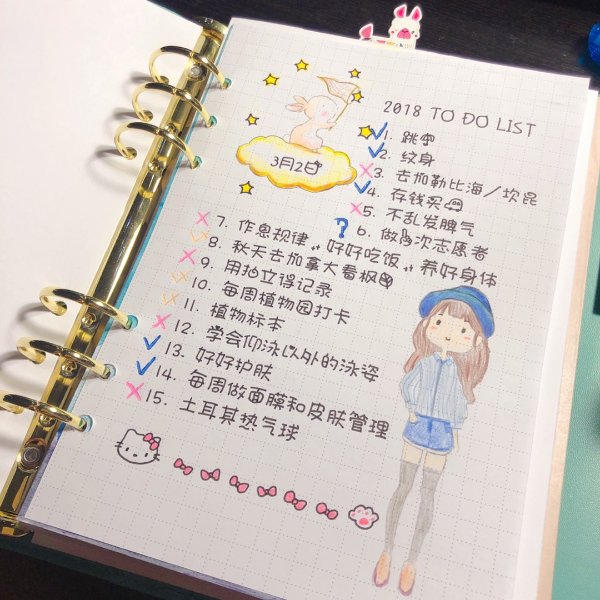 2018 TO DO LIST
3月2日
1. 跳伞
2. 纹身
3. 去加勒比海/坎昆
4. 存钱买
5. 不乱发脾气
6. 做 次志愿者
7. 作息规律 好好吃饭 养好身体
8. 秋天去加拿大看枫
9. 用拍立得记录
10. 每周植物园打卡
11. 植物标本
12. 学会仰泳以外的泳姿
13. 好好护肤
14. 每周做面膜和皮肤管理
15. 土耳其热气球